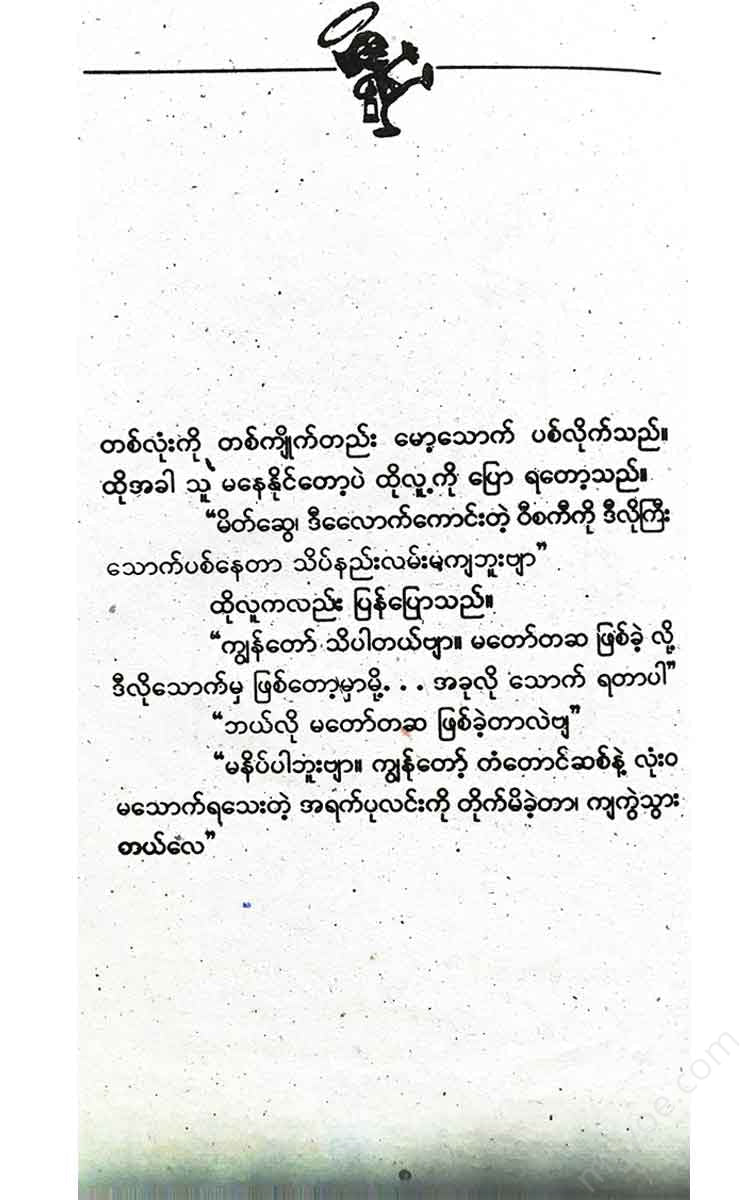 တစ်လုံးကို တစ်ကျိုက်တည်း မော့သောက် ပစ်လိုက်သည်။
ထိုအခါ သူ မနေနိုင်တော့ပဲ ထိုလူ့ကို ပြော ရတော့သည်။
“မိတ်ဆွေ၊ ဒီလောက်ကောင်းတဲ့ ဝီစကီကို ဒီလိုကြီး
သောက်ပစ်နေတာ သိပ်နည်းလမ်းမကျဘူးဗျာ”
ထိုလူကလည်း ပြန်ပြောသည်။
“ကျွန်တော် သိပါတယ်ဗျာ။ မတော်တဆ ဖြစ်ခဲ့ လို့
ဒီလိုသောက်မှ ဖြစ်တော့မှာမို့. . . အခုလို သောက် ရတာပါ”
“ဘယ်လို မတော်တဆ ဖြစ်ခဲ့တာလဲဗျ”
“မနိပ်ပါဘူးဗျာ။ ကျွန်တော့် တံတောင်ဆစ်နဲ့ လုံးဝ
မသောက်ရသေးတဲ့ အရက်ပုလင်းကို တိုက်မိခဲ့တာ၊ ကျကွဲသွား
တယ်လေ”